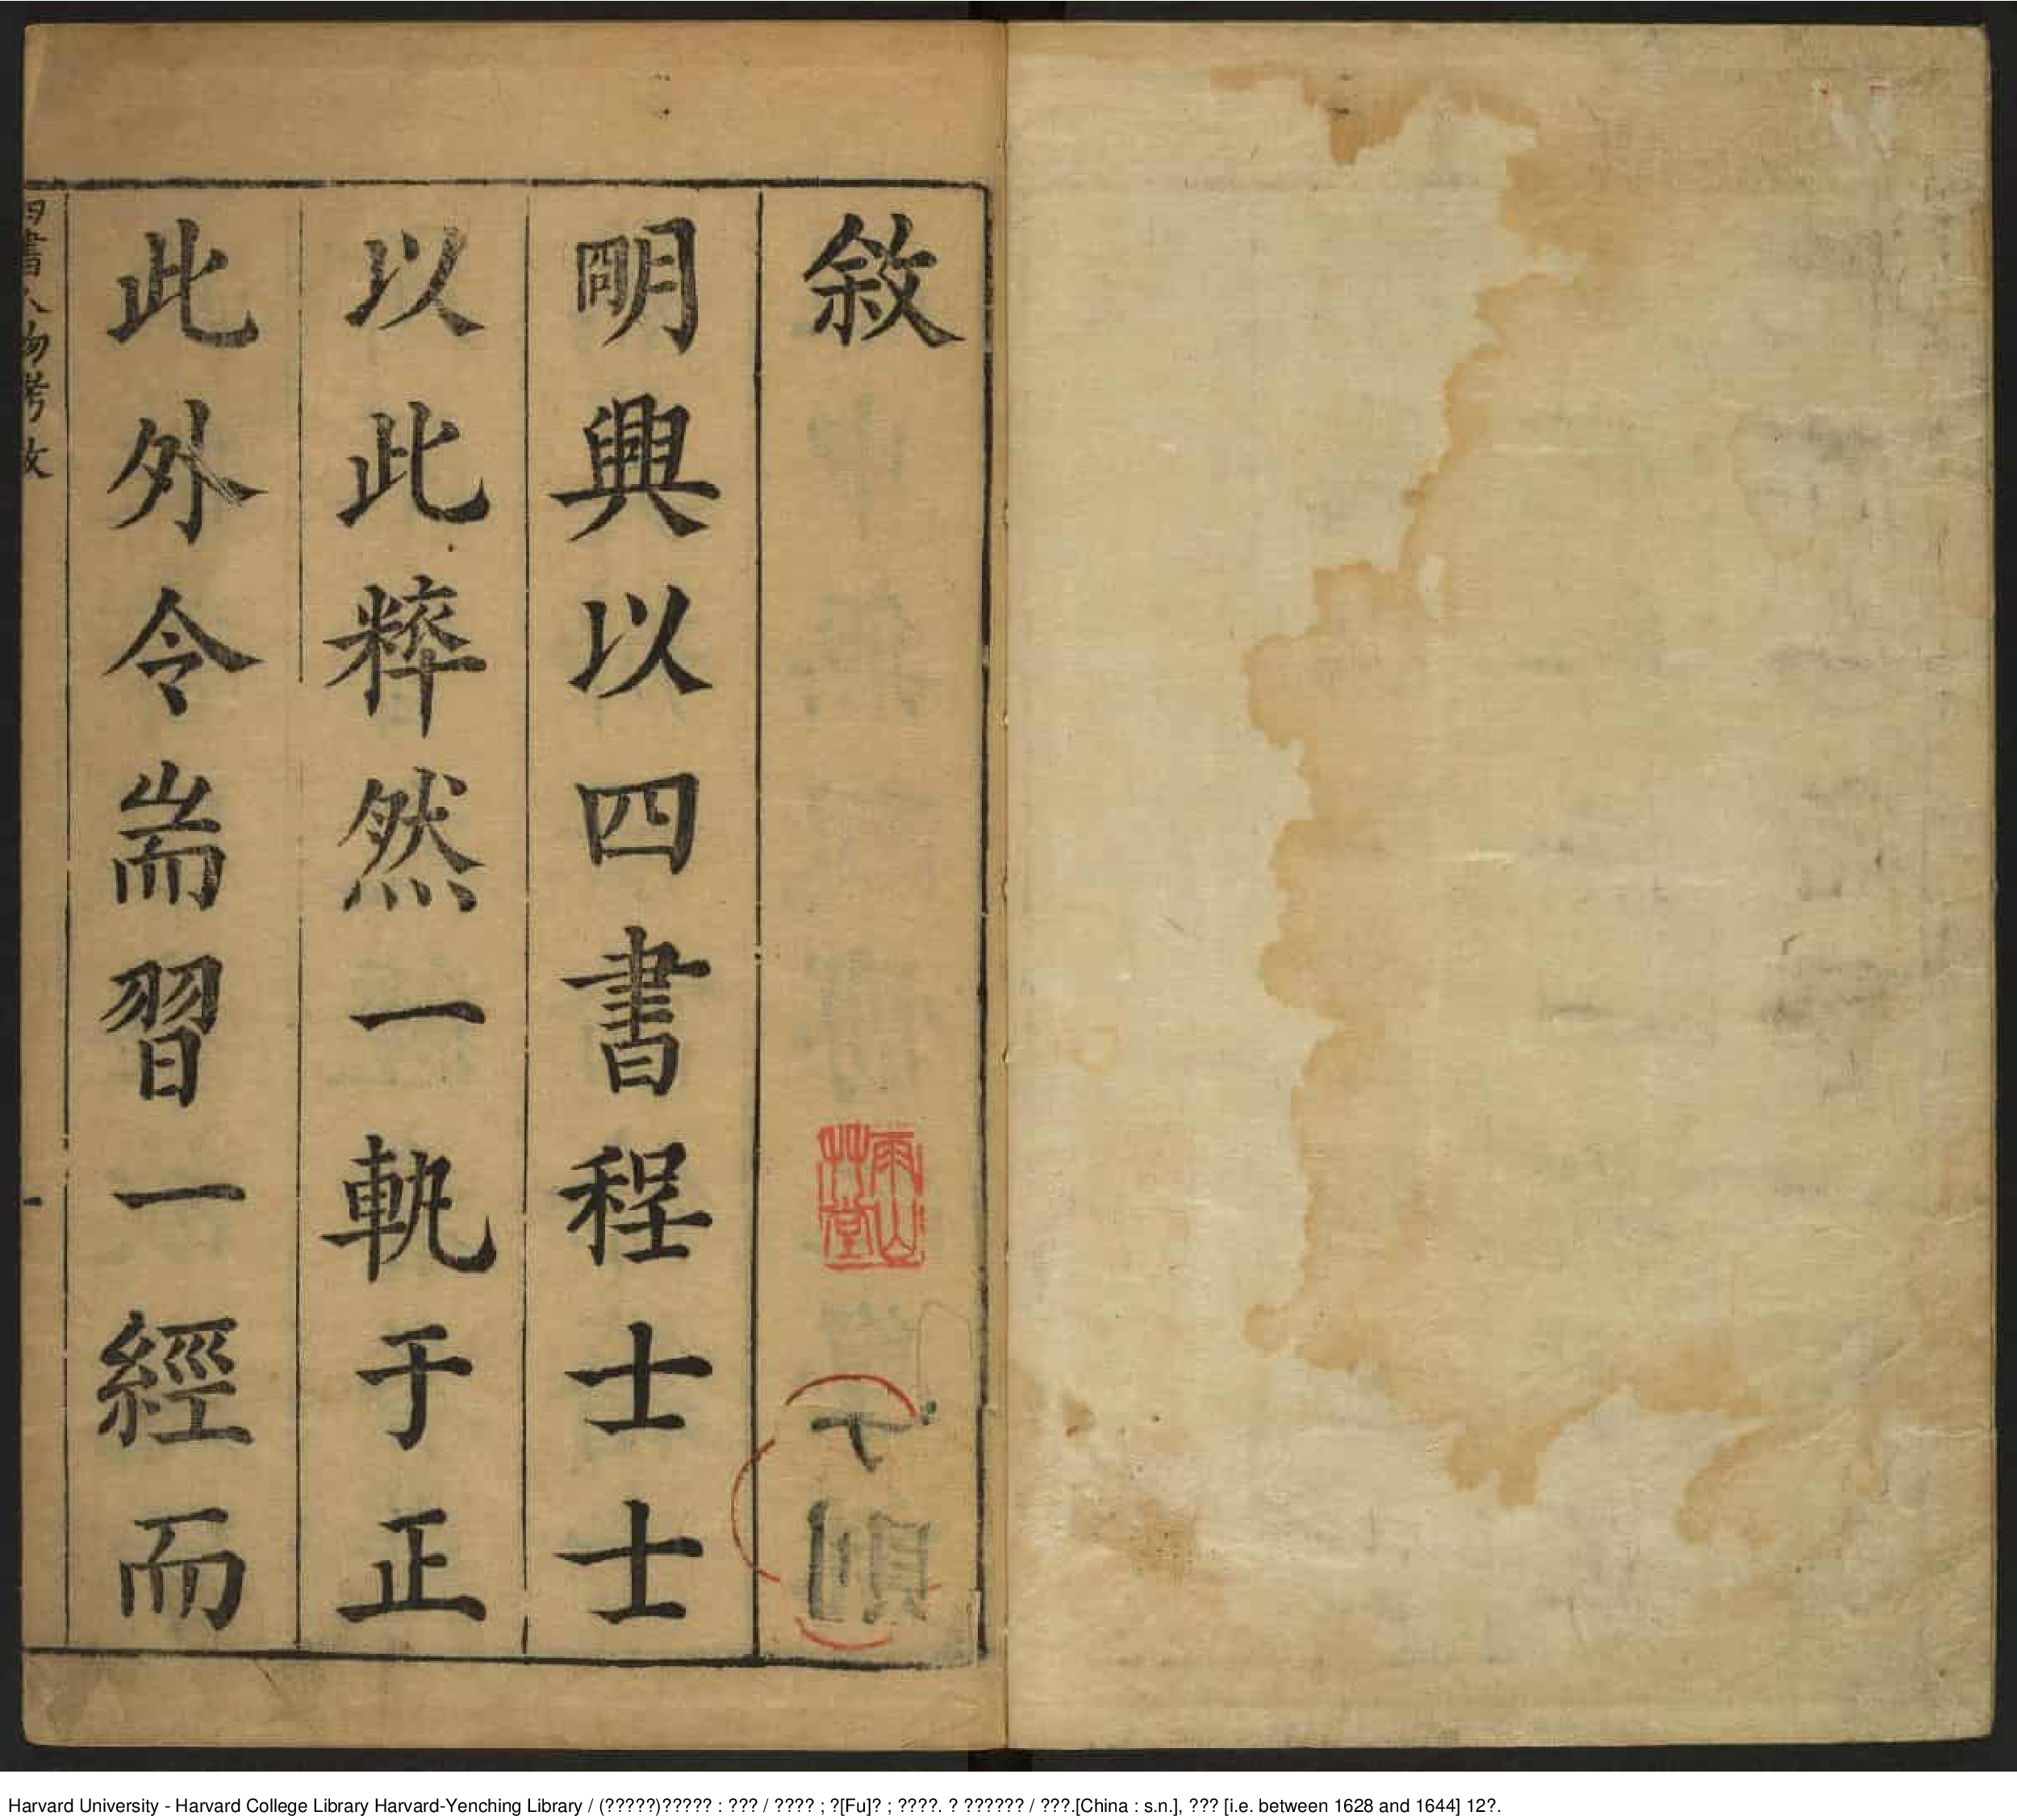 敘
明興以四書程士士
以此粹然一軌于正
此外令耑習一經而
四書人物考敘
一
雨山草堂
Harvard University - Harvard College Library Harvard-Yenching Library / (?????)????? : ??? / ???? ; ?[Fu]? ; ????. ? ?????? / ???.[China : s.n.], ??? [i.e. between 1628 and 1644] 12?.